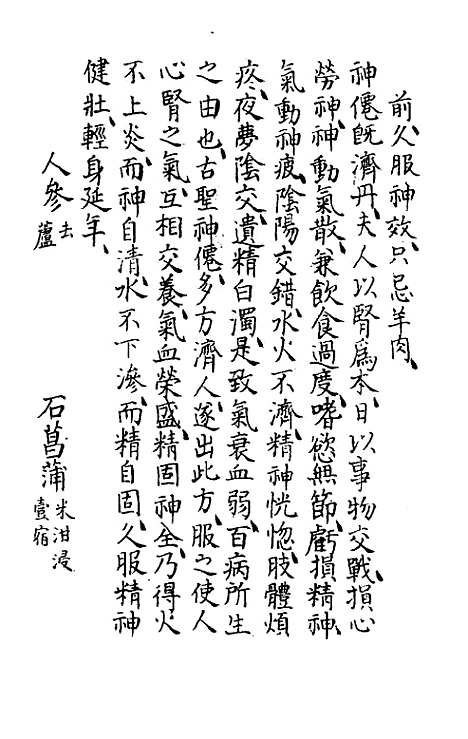 前、久服神效、只忌羊肉、
神僊既濟丹、夫人以腎爲本、日以事物交戰、損心
勞神、神動氣散、兼飲食過度、嗜慾無節、虧損精神、
氣動神疲、陰陽交錯、水火不濟、精神恍惚、肢體煩
疼、夜夢陰交、遺精白濁、是致氣衰血弱、百病所生
之由也、古聖神僊、多方濟人、遂出此方、服之使人
心腎之氣、互相交養、氣血榮盛、精固神全、乃得火
不上炎、而神自清、水不下滲、而精自固、久服精神
健壯、輕身延年、
人參去蘆 石菖蒲米泔浸壹宿